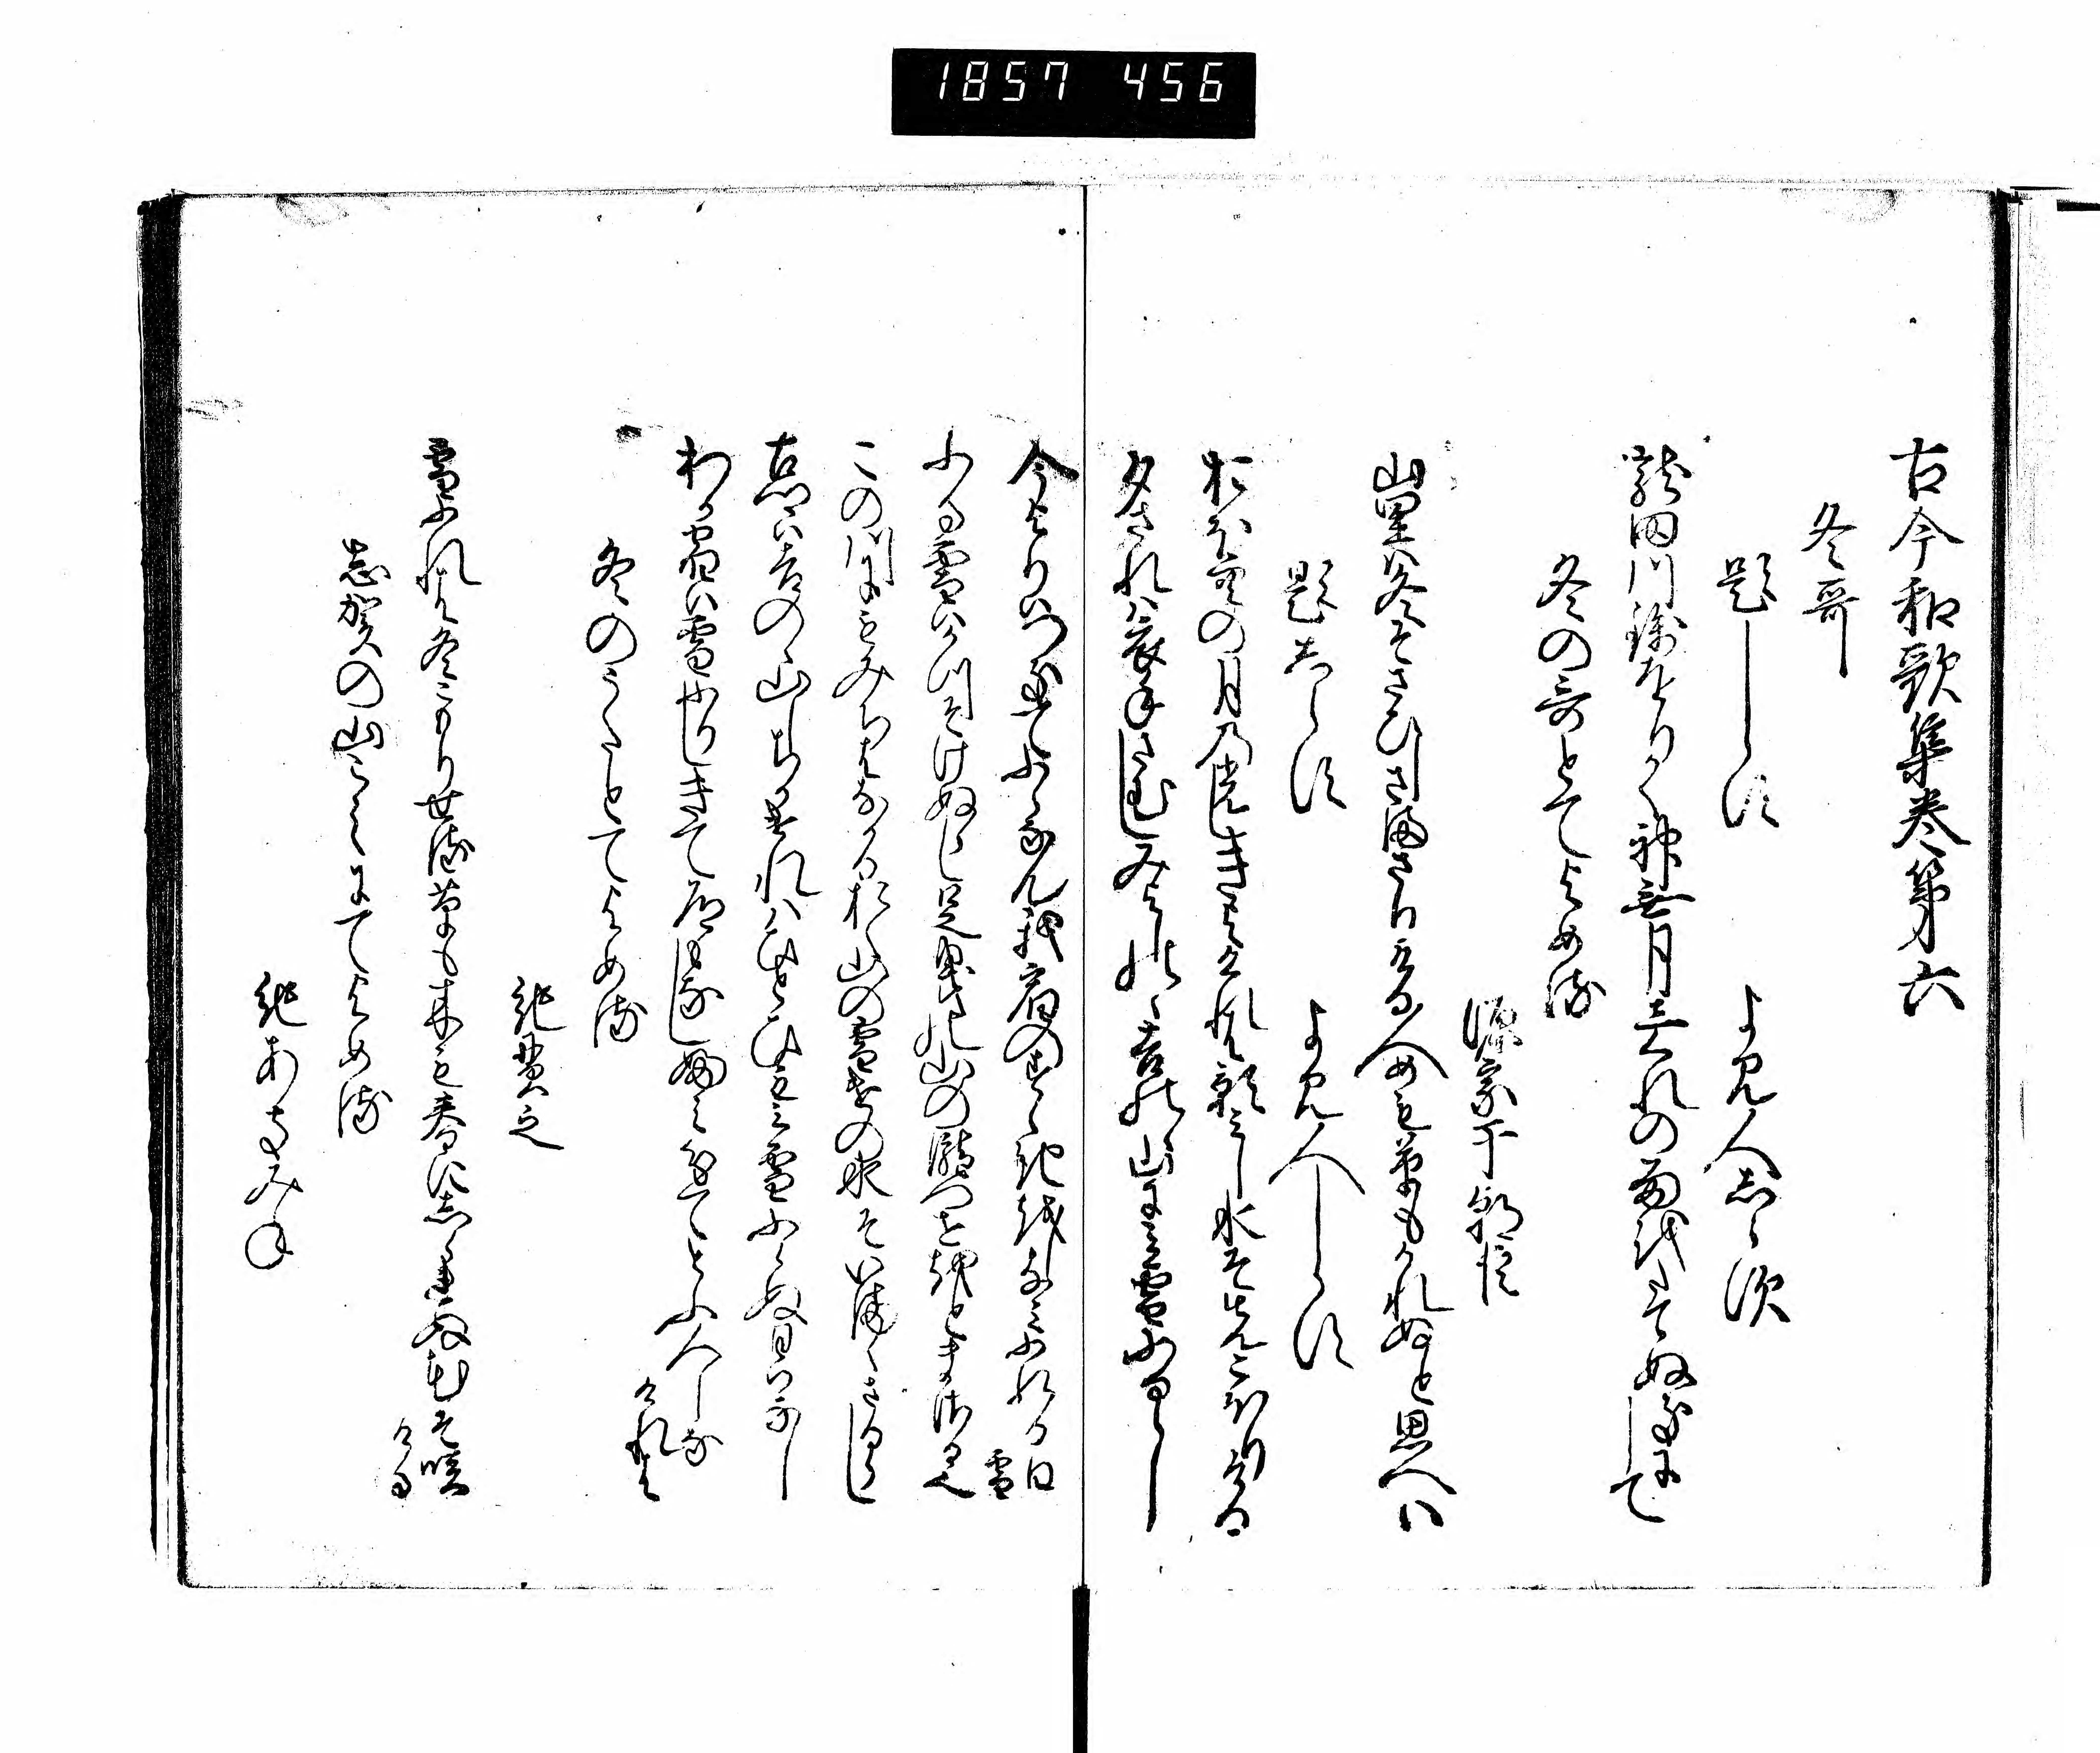 1857 456
古今和歌集巻第六
冬哥
題しらす
よみ人しらす
龍田川錦をりかく神無月しくれの雨をたてぬきにして
冬の哥とてよめる
源宗于朝臣
山里は冬そさひしさまさりける人めも草もかれぬと思へは
題しらす
よみ人しらす
おほ空の月の光しきよけれは影みし水そ先こほりける
夕されは衣手さむしみよしのゝ吉野の山にみ雪ふるらし
今よりはつきてふらなん我宿のすゝきをしなみふれる白
雪
ふる雪はかつそけぬらし足曳の山の瀧つせ音まさる也
この川にもみちはなかるおく山の雪けの水そいまゝさるらし
古さとは吉野の山しちかけれはひとひもみ雪ふらぬ日はなし
わか宿は雪ふりしきて道もなしふみわけてとふ人しな
けれは
冬のうたとてよめる
紀貫之
雪ふれは冬こもりせる草も木も春にしられぬ花そ咲
ける
志賀の山こえにてよめる
紀あきみね